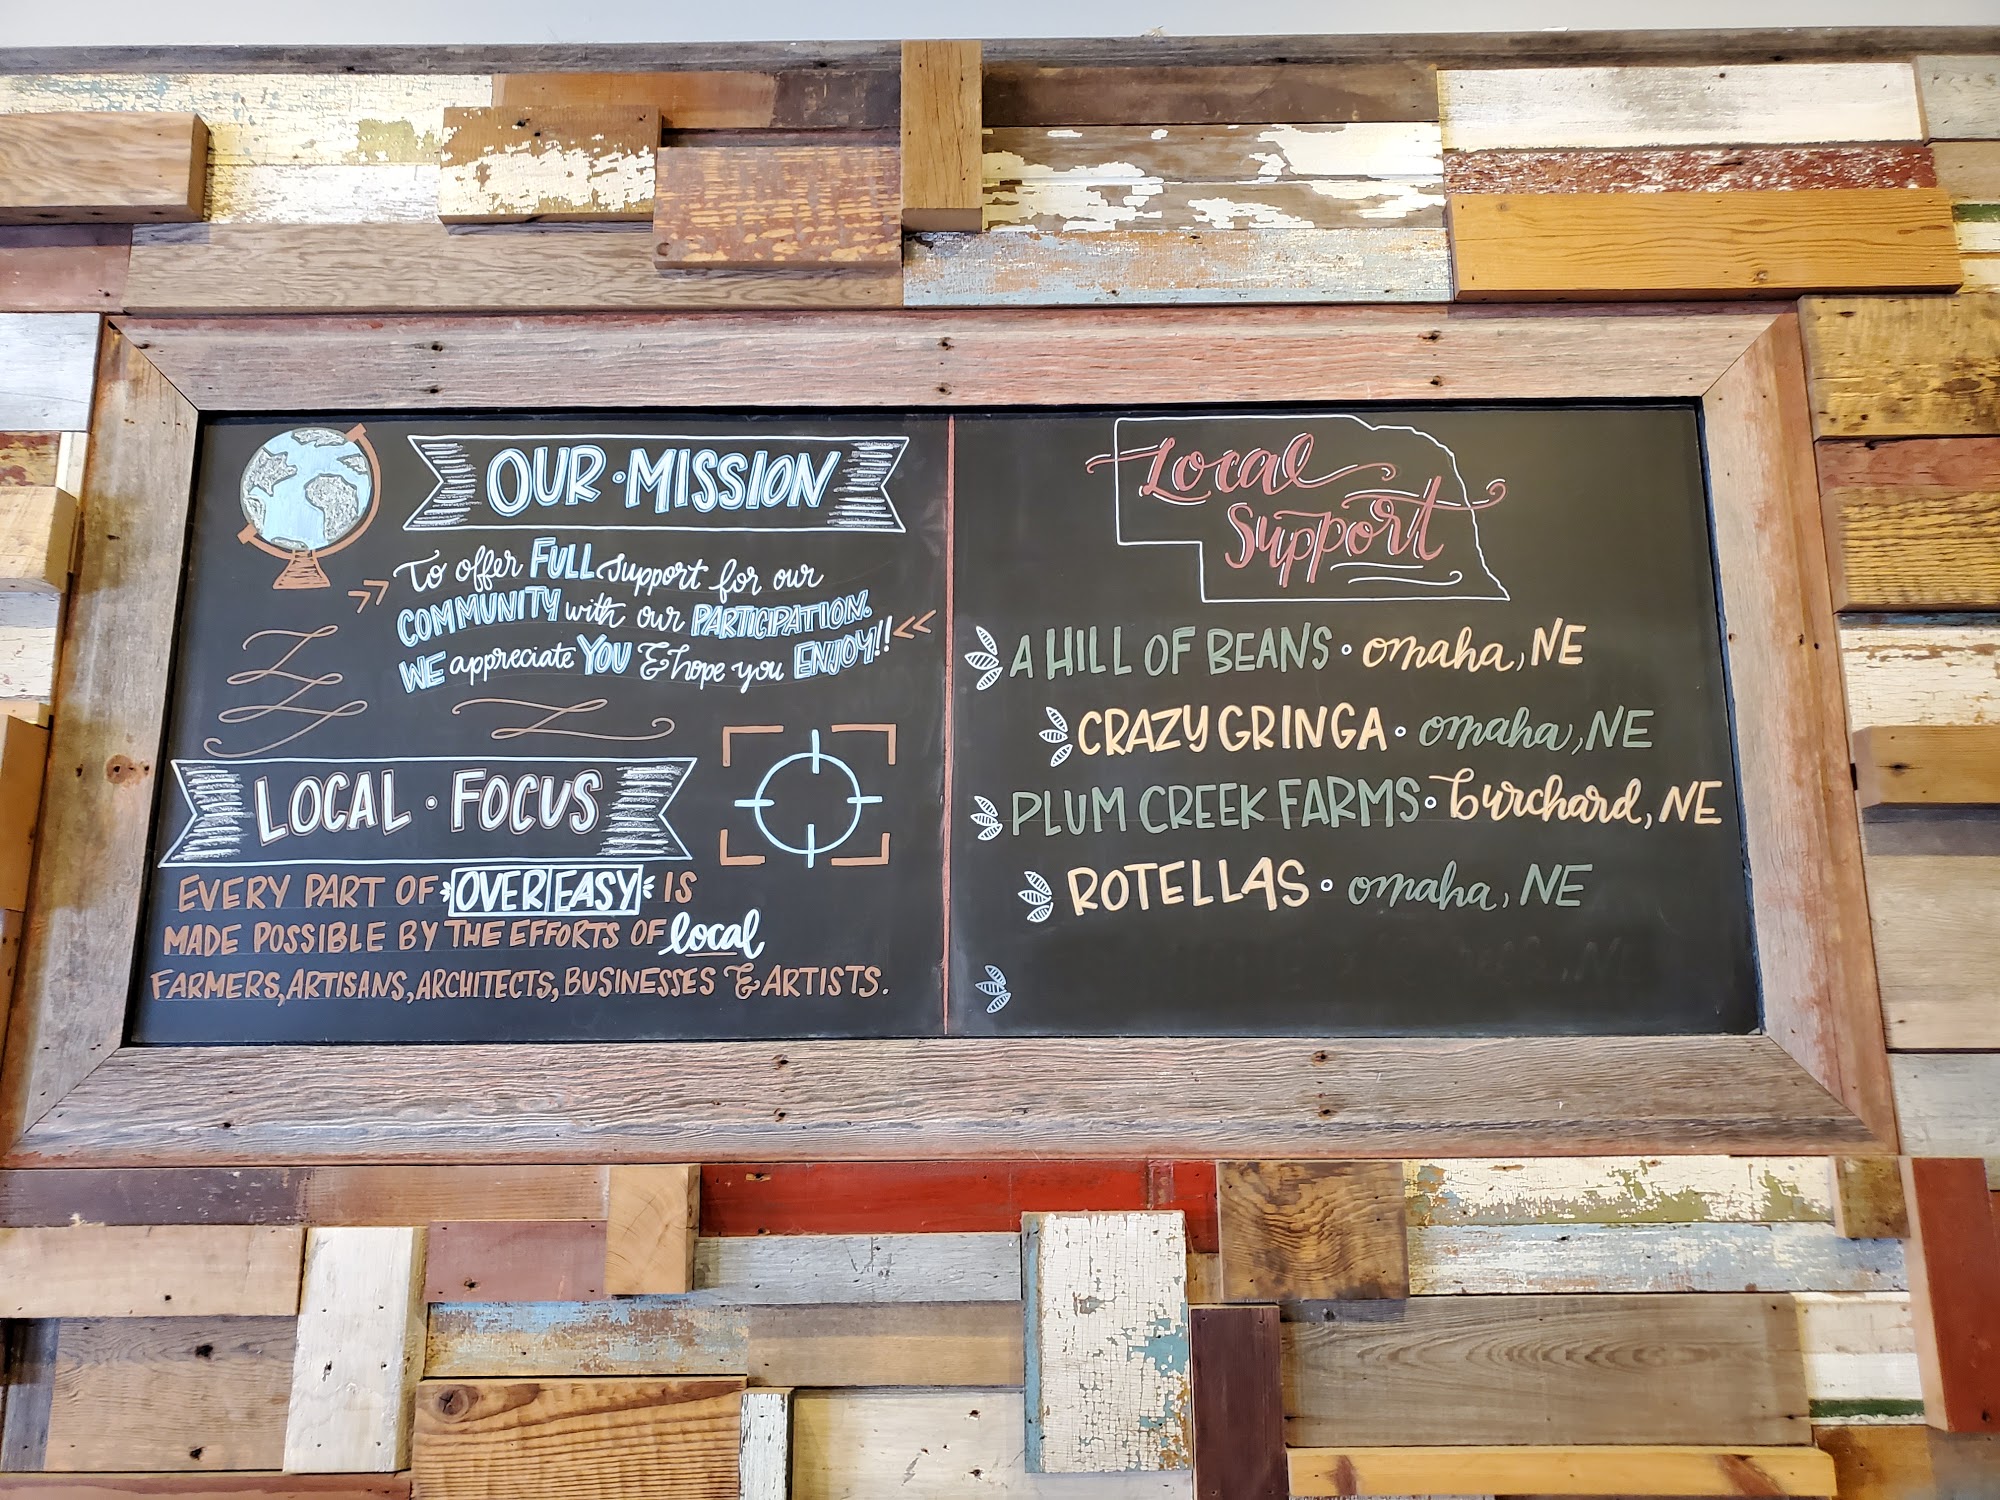 OUR • MISSION
To offer FULL support for our
COMMUNITY with our PARTICIPATION.
WE appreciate YOU & hope you ENJOY!!
LOCAL • FOCUS
EVERY PART OF OVER EASY IS
MADE POSSIBLE BY THE EFFORTS OF local
FARMERS, ARTISANS, ARCHITECTS, BUSINESSES & ARTISTS.
Local
Support
A HILL OF BEANS • omaha, NE
CRAZY GRINGA • omaha, NE
PLUM CREEK FARMS • burchard, NE
ROTELLAS • omaha, NE